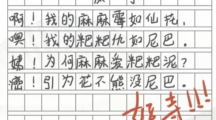 啊！我的麻麻霉如仙花，
噢！我的粑粑仇如尼巴。
嬉！为何麻麻爱粑粑泥？
噫！引为花不能没尼巴。
好诗!!!